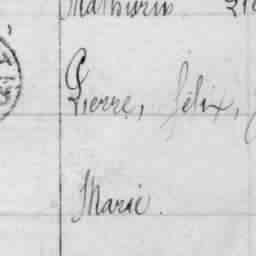 Mathurin
Pierre, félix,
Marie.